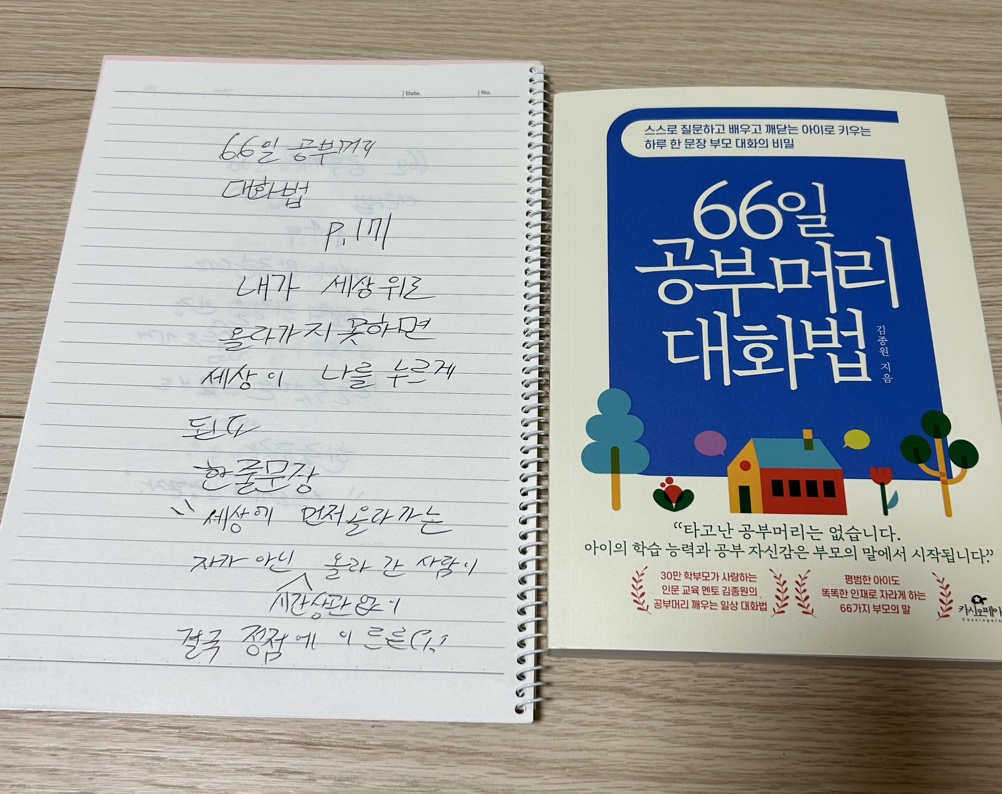 Date.
No.
66일 공부머리
대화법
P.171
내가 세상 위로
올라가지 못하면
세상이 나를 누르게
된다
한줄문장
"세상에 먼저 올라가는
자가 아닌 올라 간 사람이
시간상관없이
결국 정점에 이른다."
스스로 질문하고 배우고 깨닫는 아이로 키우는
하루 한 문장 부모 대화의 비밀
66일
공부머리
대화법
김종원 지음
“타고난 공부머리는 없습니다.
아이의 학습 능력과 공부 자신감은 부모의 말에서 시작됩니다.”
30만 학부모가 사랑하는
인문 교육 멘토 김종원의
공부머리 깨우는 일상 대화법
평범한 아이도
똑똑한 인재로 자라게 하는
66가지 부모의 말
카시오페아